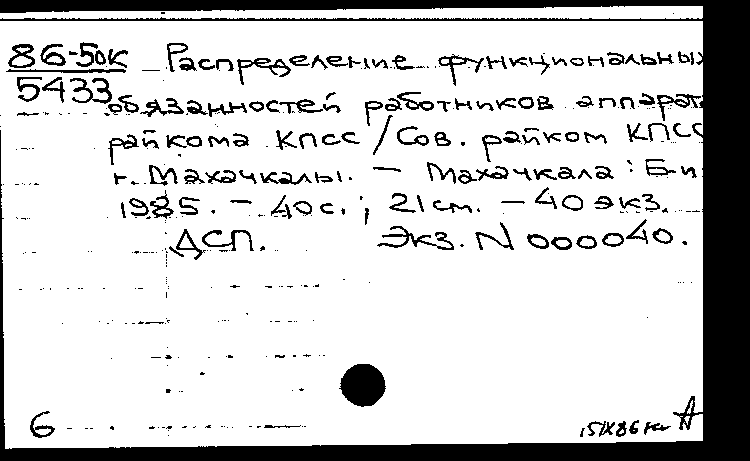 86-50к Распределение функциональных
5433 обязанностей работников аппарат
райкома КПСС / Сов. райком КПСС
г. Махачкалы. — Махачкала : Б-и
1985. — 40 с. ; 21 см. — 40 экз.
ДСП. Экз. N 000040.
6
15 IX 86 А